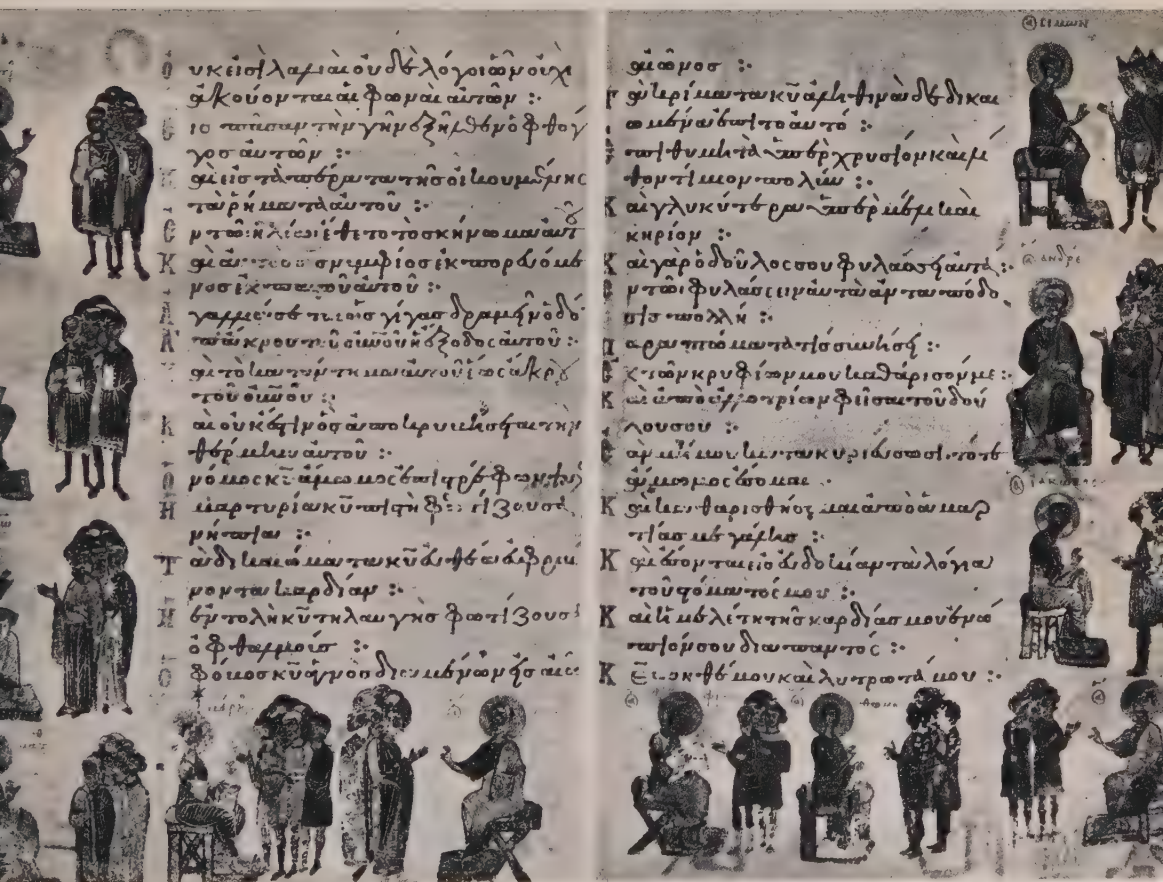 Ουκ εισὶ λαλιαὶ οὐδὲ λόγοι ὧν οὐχὶ
ἀκούονται αἱ φωναὶ αὐτῶν :·
Εἰς πᾶσαν τὴν γῆν ἐξῆλθεν ὁ φθόγ
γος αὐτῶν :·
Καὶ εἰς τὰ πέρατα τῆς οἰκουμένης
τὰ ῥήματα αὐτοῦ :·
Ἐν τῶι ἡλίωι ἔθετο τὸ σκήνωμα αὐτοῦ
Καὶ αὐτὸς νυμφίος ἐκπορευόμε
νος ἐκ παστοῦ αὐτοῦ :·
Ἀγαλλιάσεται ὡς γίγας δραμεῖν ὁδὸ
Ἀπ' ἄκρου τοῦ οὐνοῦ ἡ ἔξοδος αὐτοῦ :·
Καὶ τὸ κατάντημα αὐτοῦ ἕως ἄκρου
τοῦ οὐνοῦ :·
Καὶ οὐκ ἔστιν ὃς ἀποκρυβήσεται τὴν
θέρμην αὐτοῦ :·
Ὁ νόμος κῦ ἄμωμος ἐπιστρέφων ψυχ
Ἡ μαρτυρία κῦ πιστὴ σοφίζουσα
νήπια :·
Τὰ δικαιώματα κῦ εὐθέα εὐφραί
νοντα καρδίαν :·
Ἡ ἐντολὴ κῦ τηλαυγὴς φωτίζουσα
ὀφθαλμούς :·
Ὁ φόβος κῦ ἁγνὸς διαμένων εἰς αἰῶ
αἰῶνος :·
Τὰ κρίματα κῦ ἀληθινὰ δεδικαι
ωμένα ἐπιτοαυτό :·
Ἐπιθυμητὰ ὑπὲρ χρυσίον καὶ λί
θον τίμιον πολύν :·
Καὶ γλυκύτερα ὑπὲρ μέλι καὶ
κηρίον :·
Καὶ γὰρ ὁ δοῦλος σου φυλάσσει αὐτά :·
Ἐν τῶι φυλάσσειν αὐτὰ ἀνταπόδο
σις πολλή :·
Παραπτώματα τίς συνήσει :·
Ἐκ τῶν κρυφίων μου καθάρισόν με :·
Καὶ ἀπὸ ἀλλοτρίων φεῖσαι τοῦ δού
λου σου :·
Ἐὰν μή μου κατακυριεύσωσι τότε
ἄμωμος ἔσομαι :·
Καὶ καθαρισθήσομαι ἀπὸ ἁμαρ
τίας μεγάλης :·
Καὶ ἔσονται εἰς εὐδοκίαν τὰ λόγια
τοῦ στόματός μου :·
Καὶ ἡ μελέτη τῆς καρδίας μου ἐνώ
πιόν σου διαπαντός :·
Κ̄Ε̄ βοηθέ μου καὶ λυτρωτά μου :·
ϹΙΜΩΝ
ΑΝΔΡΕ
ΙΑΚΩΒΟϹ
ΜΑΡΚ
ΦΙ
ΘΩΜΑ